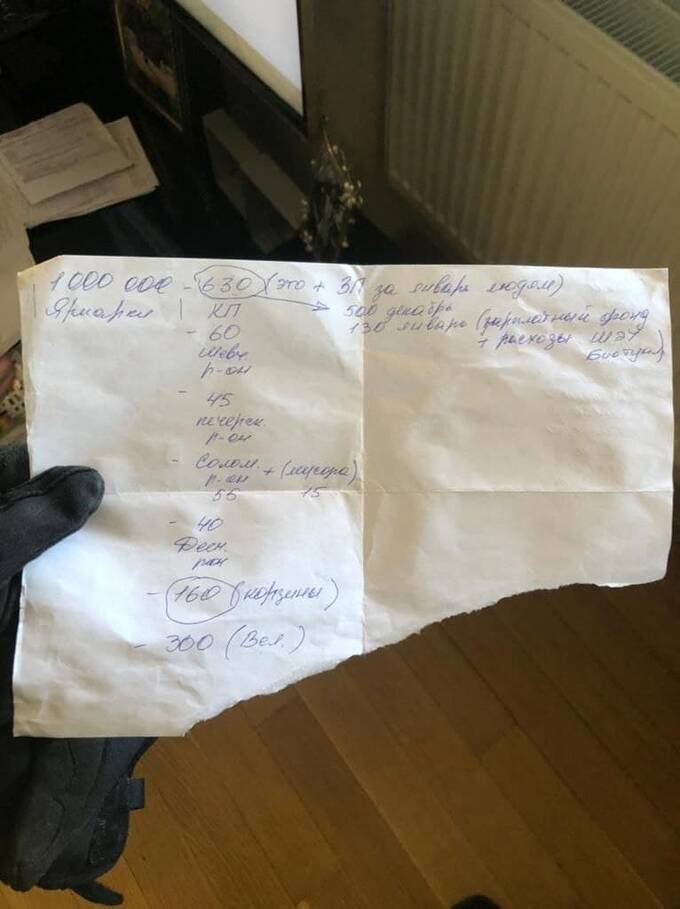 1 000 000 - 630 (это + ЗП за январь людом)
Ярмарки КП 500 декабрь
130 январь (зарплатный фонд
- 60 + расходы ШЭУ
Шевч. Биотуал)
р-он
- 45
печерск.
р-он
- Солом. + (мусора)
р-он
55 15
- 40
Десн.
р-он
- 160 (корзины)
- 300 (Вел.)